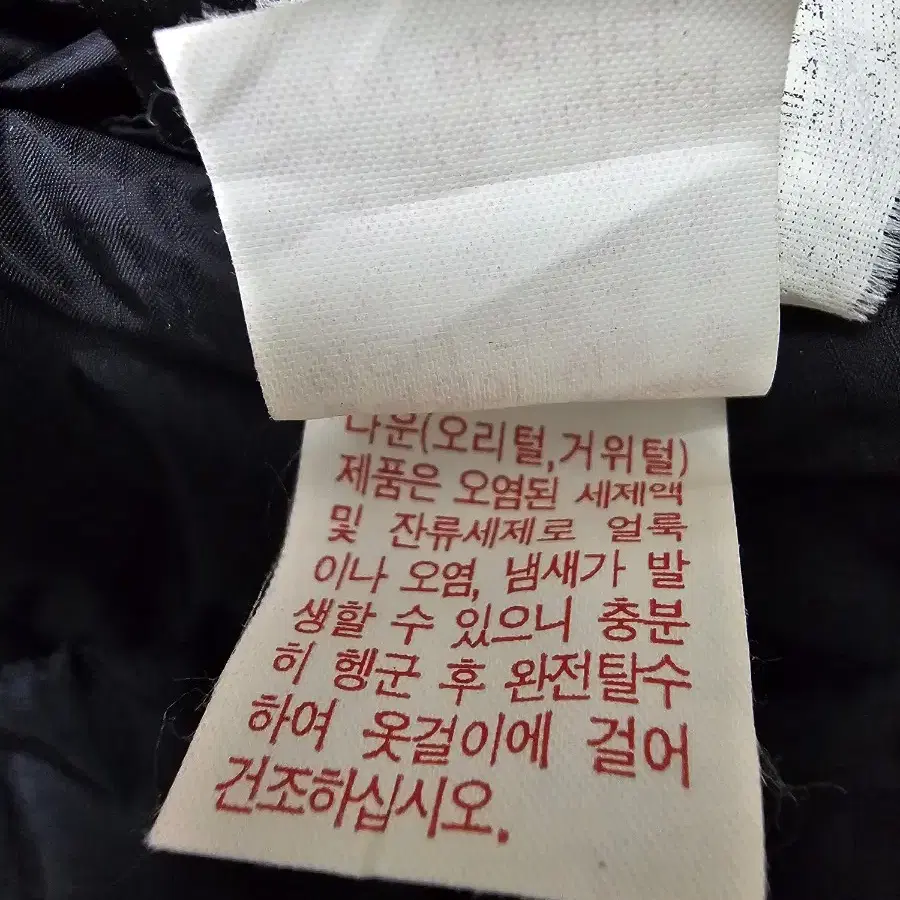 다운(오리털,거위털)
제품은 오염된 세제액
및 잔류세제로 얼룩
이나 오염, 냄새가 발
생할 수 있으니 충분
히 헹군 후 완전탈수
하여 옷걸이에 걸어
건조하십시오.